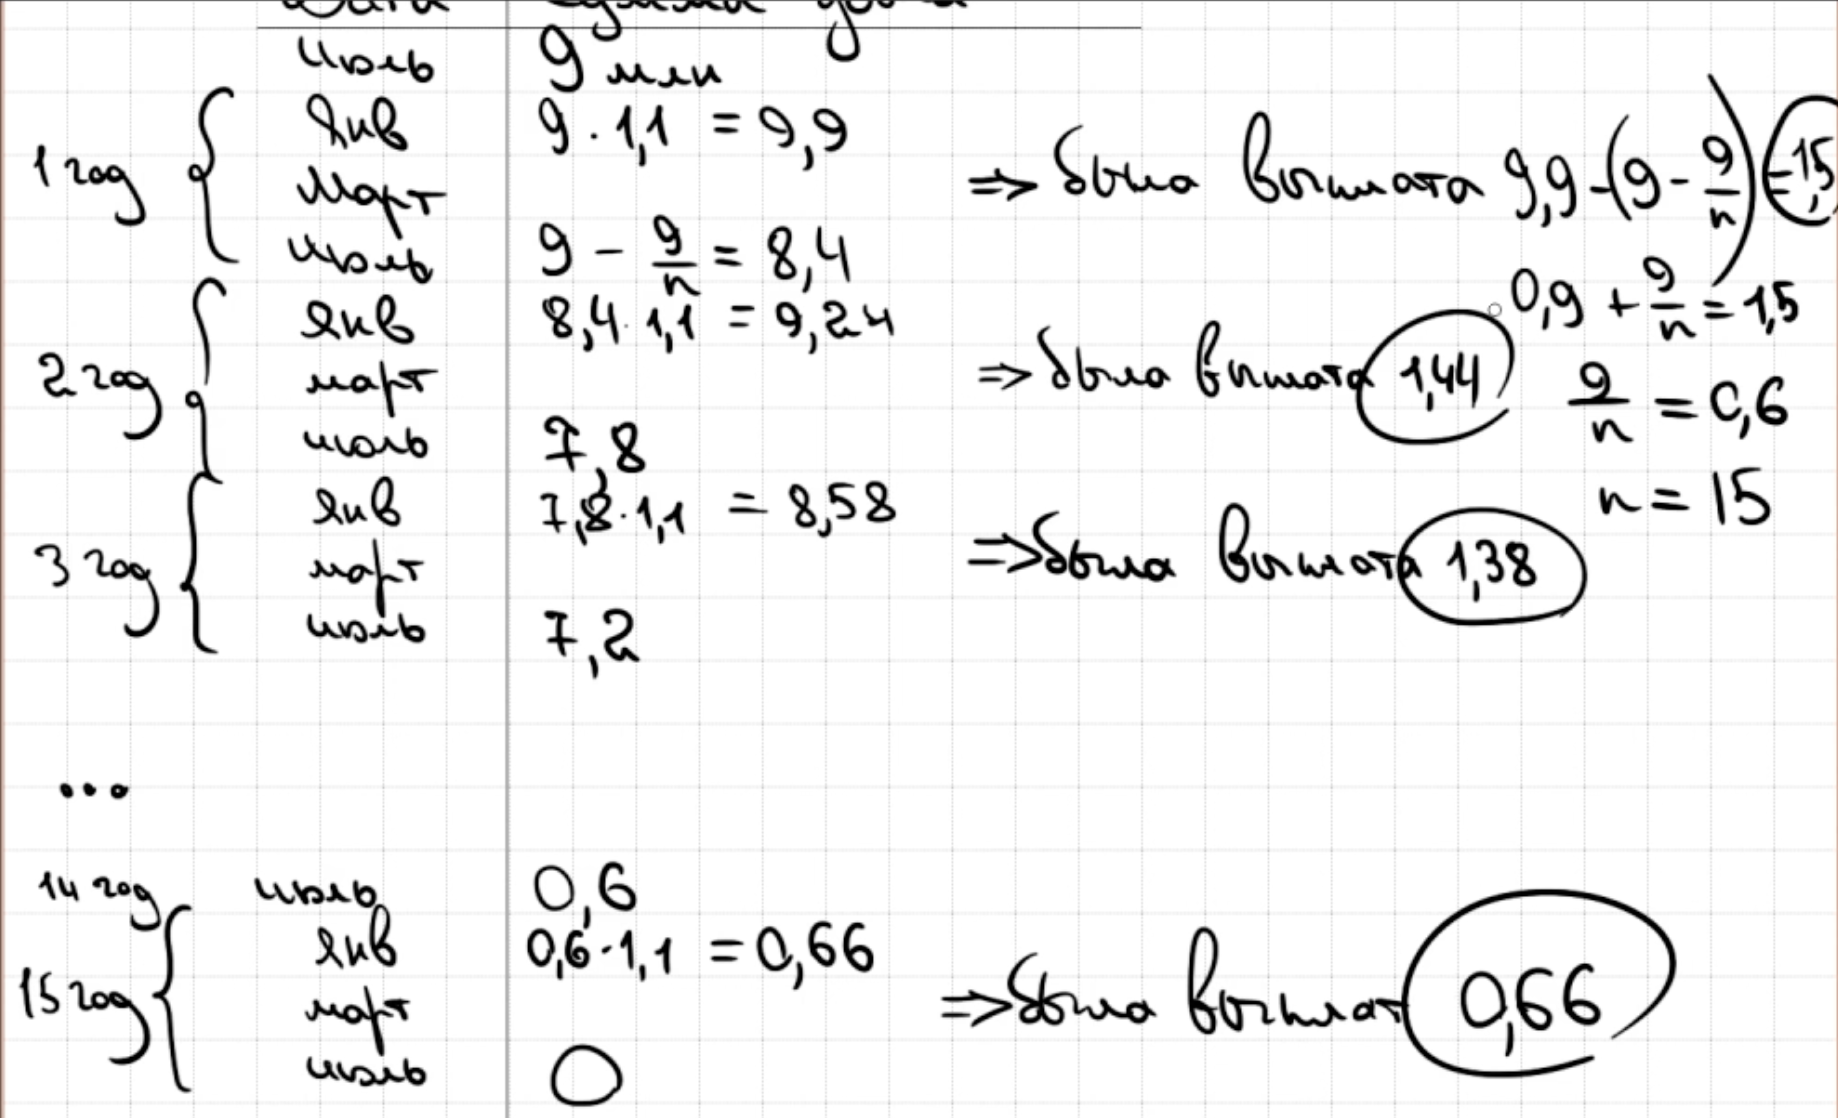 Дата Сумма долга
июль 9 млн
1 год
янв 9 · 1,1 = 9,9
март => была выплата 9,9 - (9 - 9/n) = 1,5
июль 9 - 9/n = 8,4
0,9 + 9/n = 1,5
2 год
янв 8,4 · 1,1 = 9,24
март => была выплата 1,44
9/n = 0,6
июль 7,8
n = 15
3 год
янв 7,8 · 1,1 = 8,58
март => была выплата 1,38
июль 7,2
...
14 год июль 0,6
15 год
янв 0,6 · 1,1 = 0,66
март => была выплат 0,66
июль 0